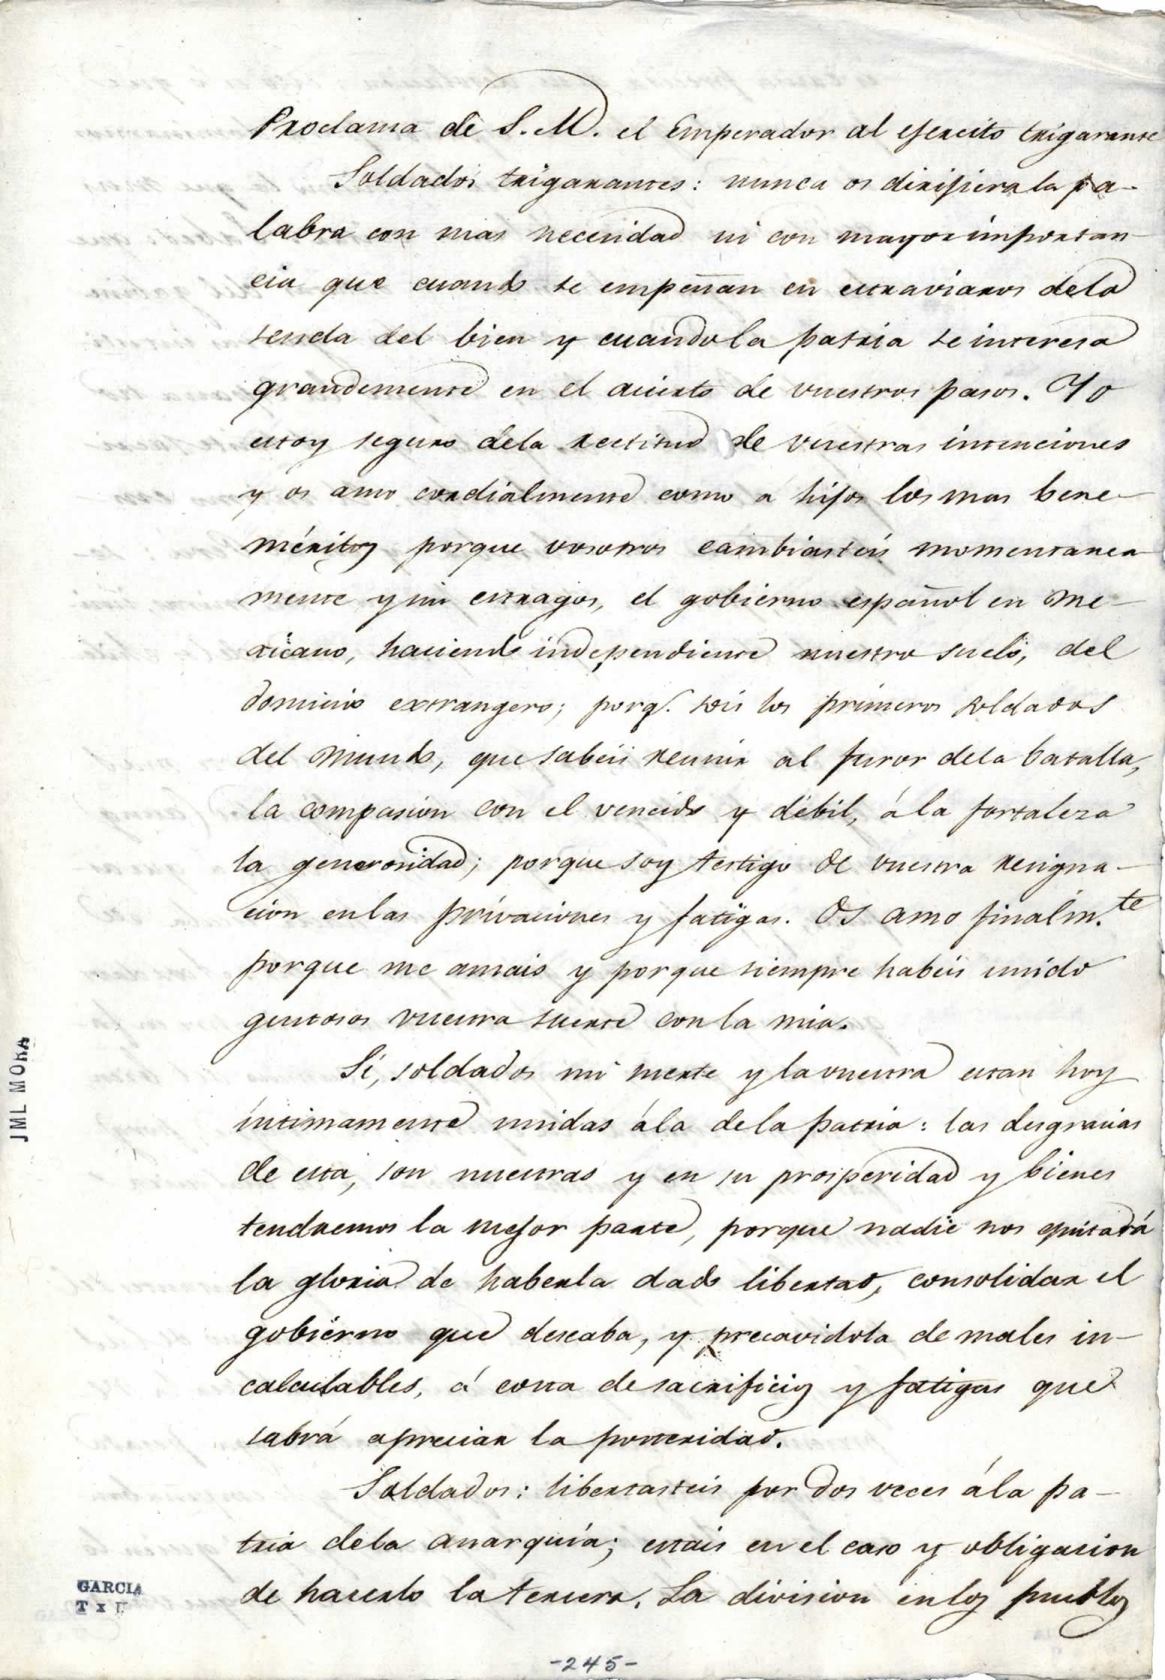 Proclama de S. M. el Emperador al ejercito trigarante
Soldados trigarantes: nunca os dirijiera la pa-
labra con mas necesidad ni con mayor importan-
cia que cuando se empeñan en estraviaros dela
senda del bien y cuando la patria se interesa
grandemente en el acierto de vuestros pasos. Yo
estoy seguro dela rectitud de vuestras intenciones
y os amo cordialmente como a hijos los mas bene-
méritos porque vosotros cambiasteis momentanea
mente y sin estragos, el gobierno español en me-
xicano, haciendo independiente nuestro suelo, del
dominio extrangero; porq. sois los primeros soldados
del mundo, que sabeis reunir al furor dela batalla,
la compasion con el vencido y débil, á la fortaleza
la generosidad; porque soy testigo de vuestra resigna-
cion en las privaciones y fatigas. Os amo finalm.te
porque me amais y porque siempre habeis unido
gustosos vuestra suerte con la mia.
Sí, soldados mi suerte y la vuestra estan hoy
íntimamente unidas á la de la patria: las desgracias
de esta, son nuestras y en su prosperidad y bienes
tendremos la mejor parte, porque nadie nos quitará
la gloria de haberla dado libertad, consolidar el
gobierno que deseaba, y precavidola de males in-
calculables, á costa de sacrificios y fatigas que
sabrá apreciar la posteridad.
Soldados: libertasteis por dos veces á la pa-
tria dela anarquía; estais en el caso y obligacion
de hacerlo la tercera. La division en los pueblos
-245-
JML MORA
GARCIA